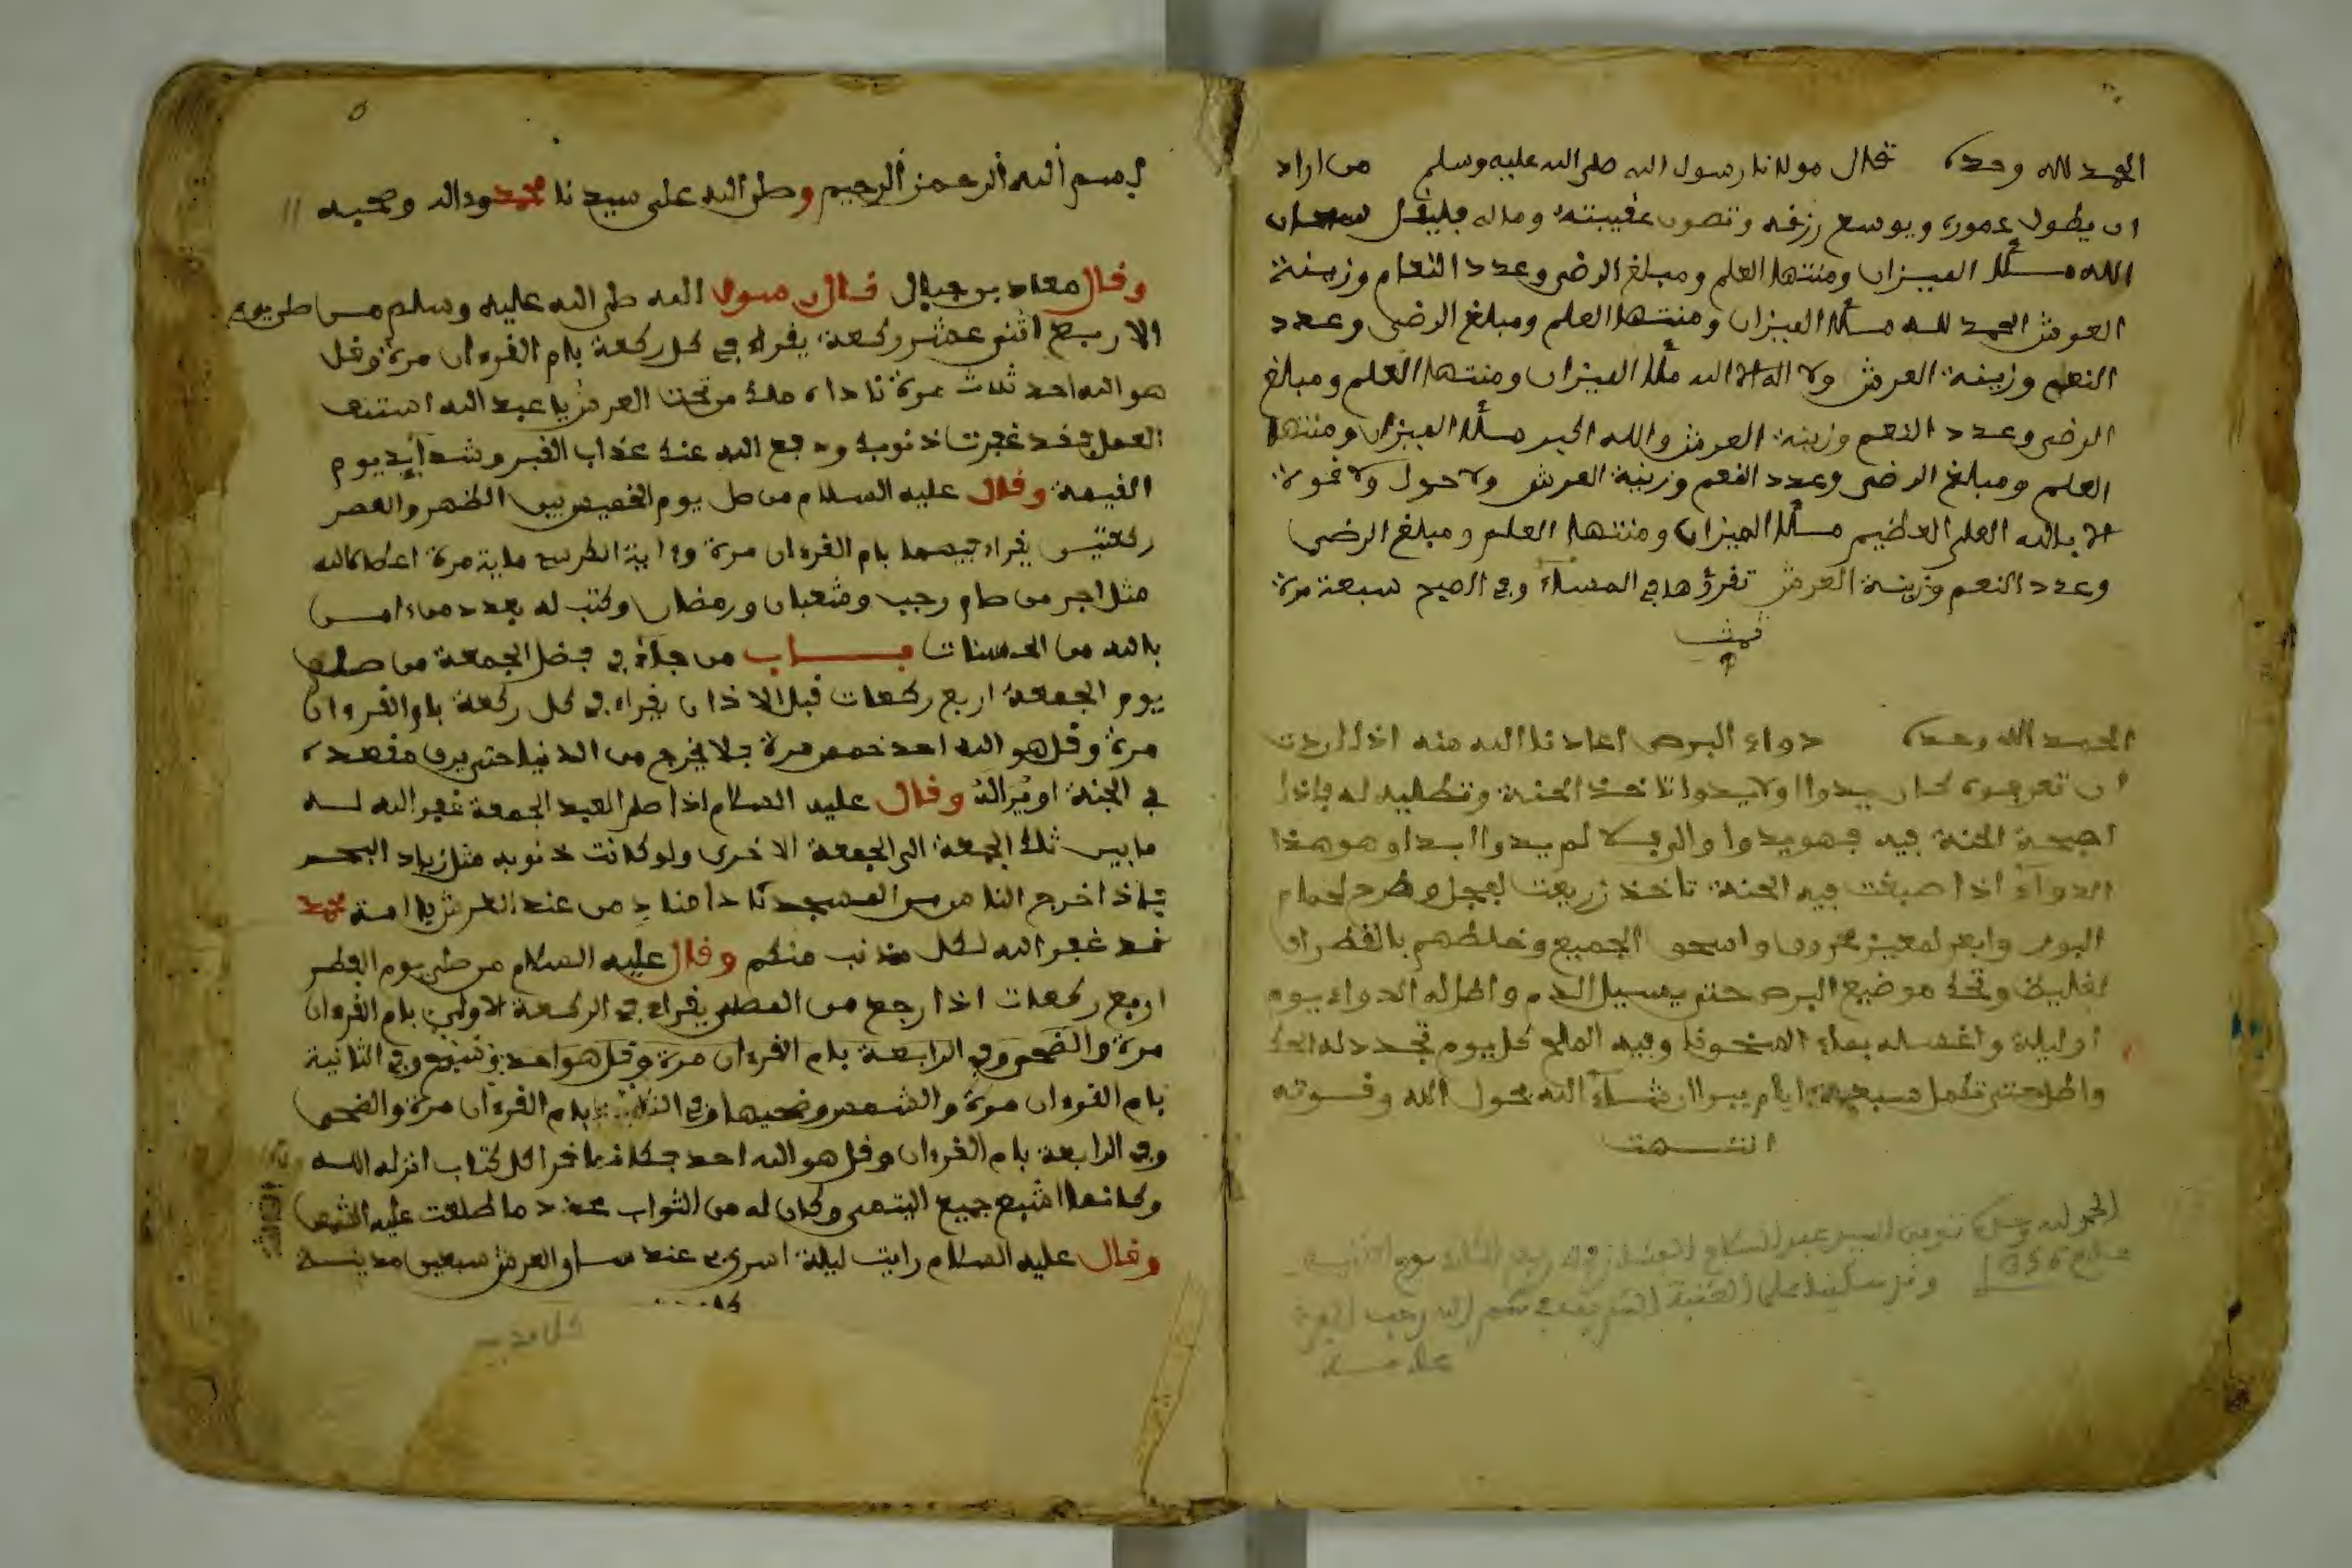 الحمد لله وحده قال مولانا رسول الله صلى الله عليه وسلم من اراد
ان يطول عموره ويوسع رزقه وتصون عقيبته وماله فليقل سبحان
الله مــلأ الميزان ومنتها العلم ومبلغ الرضى وعدد النعام وزينة
العرش الحمد لله مــلأ الميزان ومنتها العلم ومبلغ الرضى وعدد
النعم وزينة العرش ولا اله الا الله ملأ الميزان ومنتها العلم ومبلغ
الرضى وعدد النعم وزينة العرش والله اكبر مــلأ الميزان ومنتها
العلم ومبلغ الرضى وعدد النعم وزينة العرش ولا حول ولا قوة
الا بالله العلي العظيم مــلأ الميزان ومنتها العلم ومبلغ الرضى
وعدد النعم وزينة العرش تقرؤها في المساء وفي الصبح سبعة مرة
تمت
الحمد لله وحده دواء البرص اعادنا الله منه اذا اردت
ان تعرفوه كان يبدوا ولا يبدوا تاخذ الحنة وتطليه له فاذا
اصبحة الحنة فيه فهو يبدوا والا فلا لم يبدوا ابدا وهو هذا
الدواء اذا صبغت فيه الحنة تاخذ زريعت لفجل وطرح لحمام
البور وابعر لمعيز محروق واسحق الجميع وخلطهم بالقطران
لغليظ وتحك موضيع البرص حتى يسيل الدم واطل له الدواء يوم
اوليلة واغسله بماء السخون وفيه الملح كل يوم تجدد له الحك
واطل حتى تكمل سبعة ايام يبرا ان شاء الله بحول الله وقوته
انتــهت
الحمد لله
عام 1356
بسم الله الرحمن الرحيم وصلى الله على سيدنا محمد واله وصحبه
وقال معاد بن جبال قال رسول الله صلى الله عليه وسلم من صلى يوم
الاربع اثنى عشر ركعة يقراء في كل ركعة بام القرءان مرة وقل
هو الله احد ثلاث مرة ناداه ملك من تحت العرش يا عبد الله استنف
العمل فقد غفرت ذنوبك ودفع الله عنك عذاب القبر وشدايد يوم
القيمة وقال عليه السلام من صل يوم الخميس بين الظهر والعصر
ركعتين يقراء فيهما بام القرءان مرة وءاية الكرسي ماية مرة اعطاه الله
مثل اجر من صام رجب وشعبان ورمضان وكتب له بعدد من ءامن
بالله من الحسنات بــاب من جاء في فضل الجمعة من صلى
يوم الجمعة اربع ركعات قبل الاذان يقراء في كل ركعة بام القرءان
مرة وقل هو الله احد خمس مرة فلا يخرج من الدنيا حتى يرى مقعده
في الجنة او يرا له وقال عليه السلام اذا صلى العبد الجمعة غفر الله له
ما بين تلك الجمعة الى الجمعة الاخرى ولو كانت ذنوبه مثل زباد البحر
فاذا خرج الناس من المسجد نادا مناد من عند العرش يا امة محمد
قد غفر الله لكل مذنب منكم وقال عليه السلام من صلى يوم الفطر
اربع ركعات اذا رجع من المصلى يقراء في الركعة الاولى بام القرءان
مرة والضحى وفي الرابعة بام القرءان مرة وقل هو احد وفي الثانية
بام القرءان مرة والشمس وضحيها وفي الثالثة بام القرءان مرة والضحى
وفي الرابعة بام القرءان وقل هو الله احد فكانما قرا كل كتاب انزله الله
وكانما اشبع جميع اليتمى وكان له من الثواب عدد ما طلعت عليه الشمس
وقال عليه السلام رايت ليلة اسرى عند ساق العرش سبعين مدينة
كل مدينة